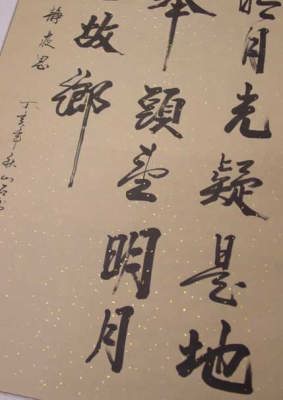 明月光疑是地
舉頭望明月
故鄉
靜夜思
丁亥年秋山